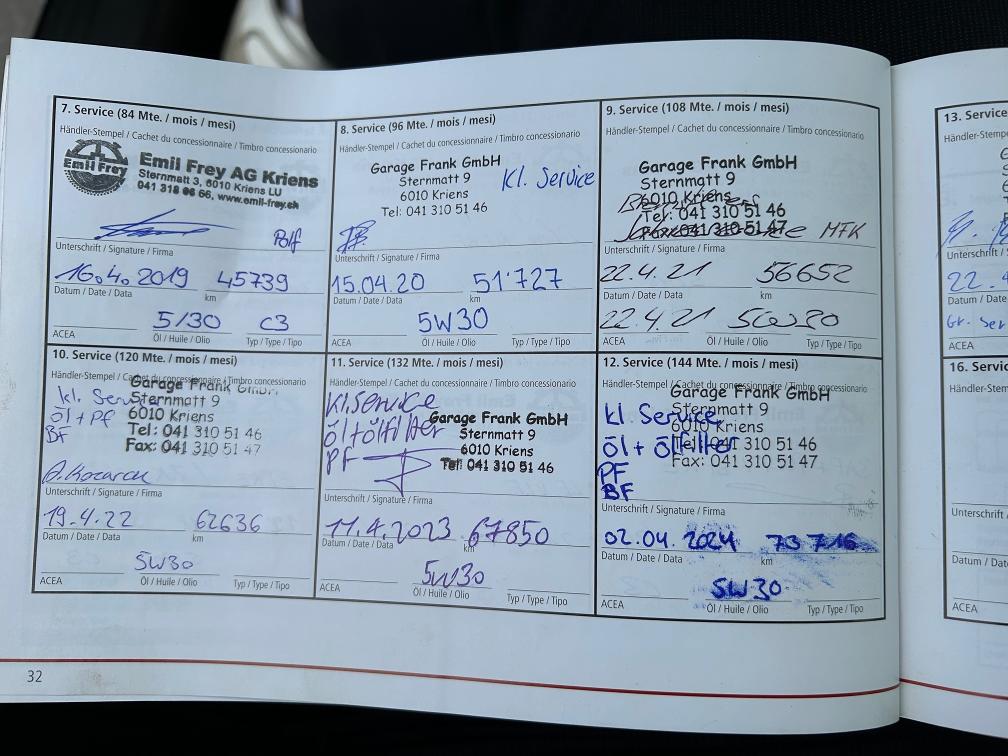 7. Service (84 Mte. / mois / mesi)
Händler-Stempel / Cachet du concessionnaire / Timbro concessionario
Emil Frey
Emil Frey AG Kriens
Sternmatt 3, 6010 Kriens LU
041 318 66 66, www.emil-frey.ch
Unterschrift / Signature / Firma
16.4.2019 45739
Datum / Date / Data km
5/30 C3
ACEA Öl / Huile / Olio Typ / Type / Tipo
8. Service (96 Mte. / mois / mesi)
Händler-Stempel / Cachet du concessionnaire / Timbro concessionario
Garage Frank GmbH
Sternmatt 9
6010 Kriens
Tel: 041 310 51 46
Kl. Service
Unterschrift / Signature / Firma
15.04.20 51'727
Datum / Date / Data km
5W30
ACEA Öl / Huile / Olio Typ / Type / Tipo
9. Service (108 Mte. / mois / mesi)
Händler-Stempel / Cachet du concessionnaire / Timbro concessionario
Garage Frank GmbH
Sternmatt 9
6010 Kriens
Tel: 041 310 51 46
Fax: 041 310 51 47
MFK
Unterschrift / Signature / Firma
22.4.21 56652
Datum / Date / Data km
22.4.21 5W30
ACEA Öl / Huile / Olio Typ / Type / Tipo
10. Service (120 Mte. / mois / mesi)
Händler-Stempel / Cachet du concessionnaire / Timbro concessionario
Garage Frank GmbH
Sternmatt 9
6010 Kriens
Tel: 041 310 51 46
Fax: 041 310 51 47
kl. Service
Öl + PF
BF
Unterschrift / Signature / Firma
19.4.22 62636
Datum / Date / Data km
5W30
ACEA Öl / Huile / Olio Typ / Type / Tipo
11. Service (132 Mte. / mois / mesi)
Händler-Stempel / Cachet du concessionnaire / Timbro concessionario
Kl. Service
Öl+Ölfilter
PF
Garage Frank GmbH
Sternmatt 9
6010 Kriens
Tel: 041 310 51 46
Unterschrift / Signature / Firma
11.4.2023 67850
Datum / Date / Data km
5W30
ACEA Öl / Huile / Olio Typ / Type / Tipo
12. Service (144 Mte. / mois / mesi)
Händler-Stempel / Cachet du concessionnaire / Timbro concessionario
Garage Frank GmbH
Sternmatt 9
6010 Kriens
Tel: 041 310 51 46
Fax: 041 310 51 47
kl. Service
Öl + Ölfilter
PF
BF
Unterschrift / Signature / Firma
02.04.2024 73 716
Datum / Date / Data km
5W30
ACEA Öl / Huile / Olio Typ / Type / Tipo
32
13. Service
Händler-Stempe
Unterschrift /
22.4
Datum / Date
Gr. Ser
ACEA
16. Servic
Händler-Stem
Unterschrift
Datum / Dat
ACEA